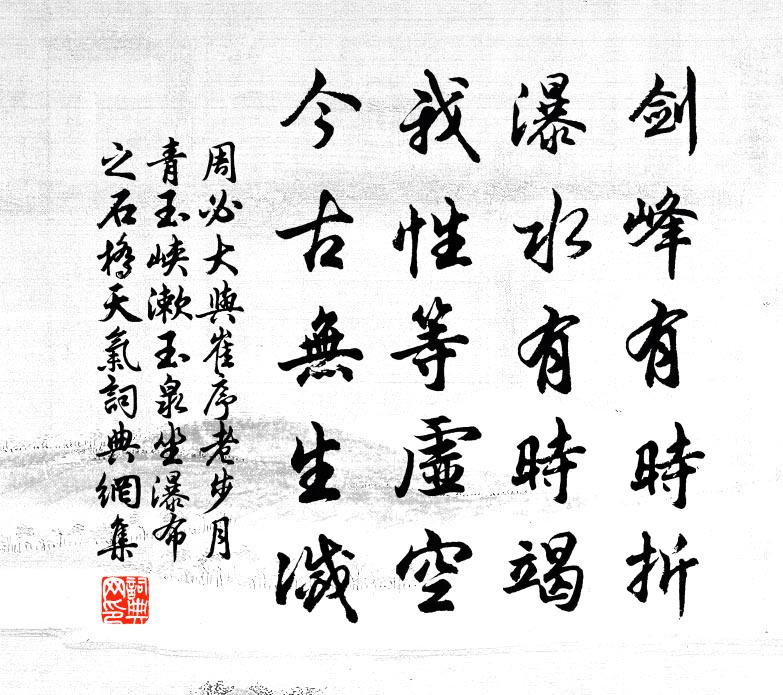 剑峰有时折
瀑水有時竭
我性等虛空
今古無生滅
周必大與崔序老步月
青玉峽漱玉泉坐瀑布
之石橋天氣詞典網集
詞典
网印